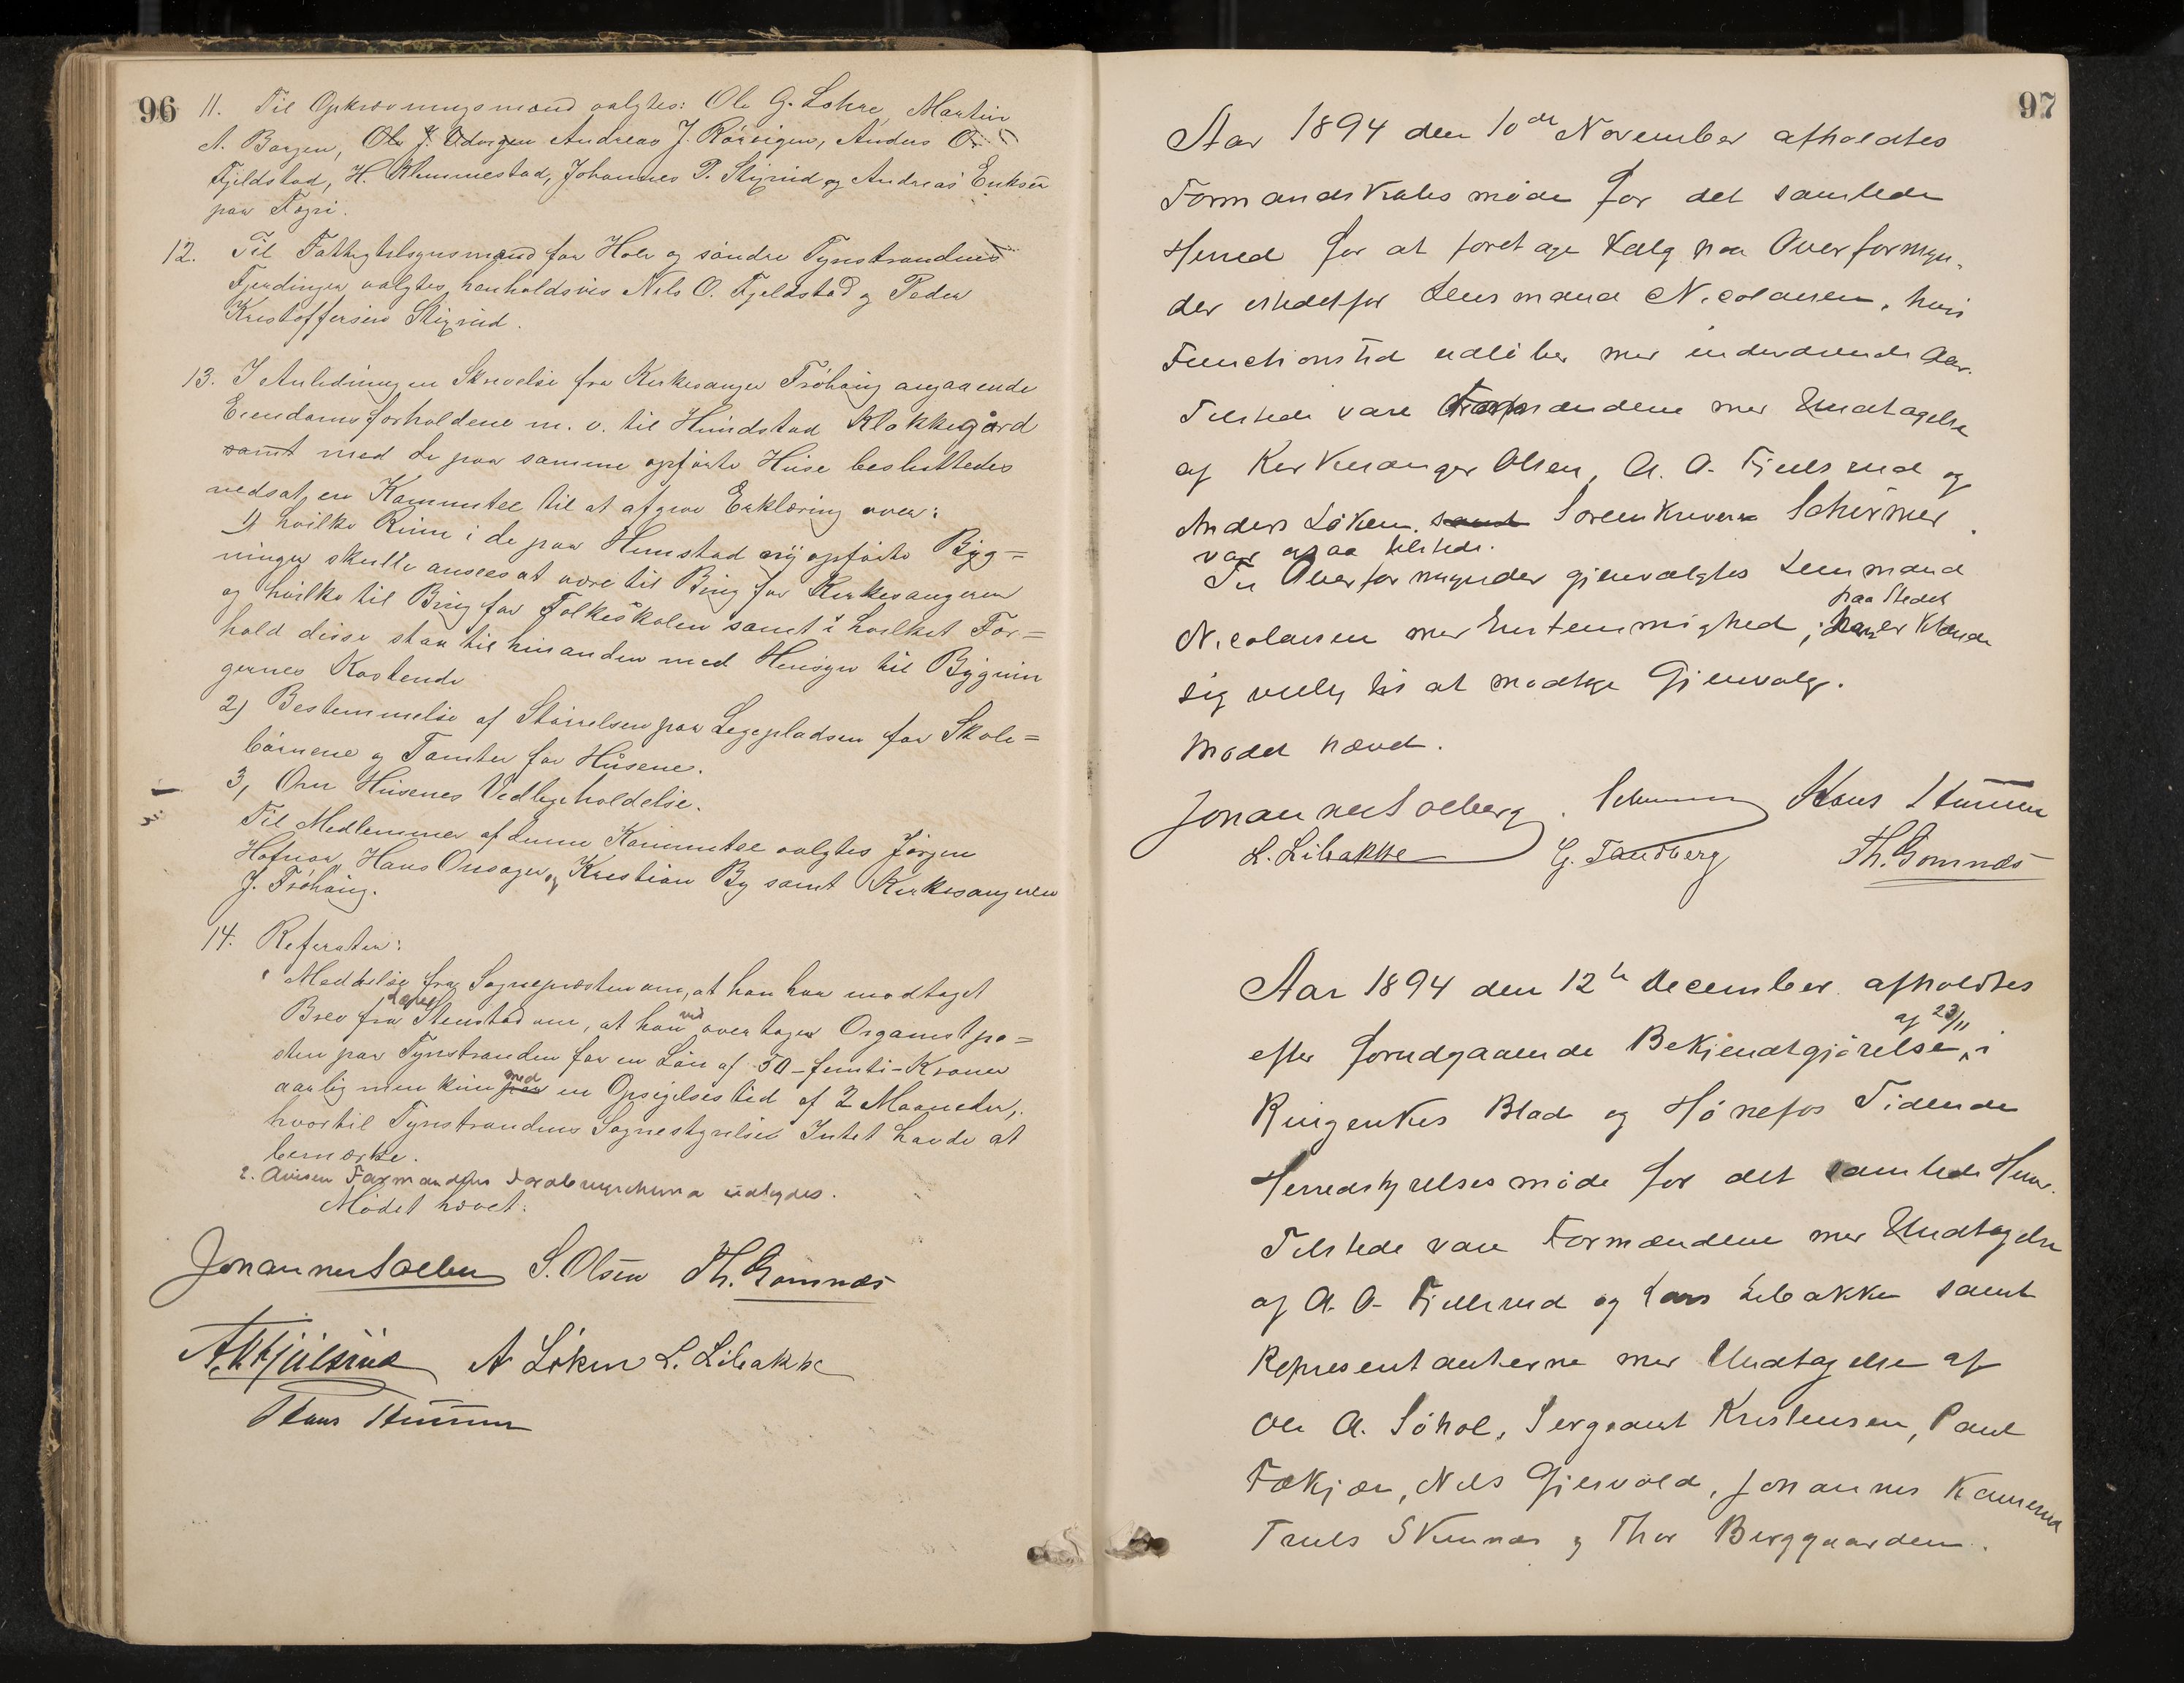 96
11. Til Opkrævningsmænd valgtes: Ole G. Lohre, Martin
A. Borgen, Ole J. Ødorgen Andreas J. Rørvigen, Anders O.
Fjeldstad, H. Klemmestad, Johannes P. Stigrud og Andreas Eriksen
paa Fagri.
12. Til Fattigtilsynsmænd for Hole og søndre Tyristrandens
Fjerdinger valgtes henholdsvis Nils O. Fjeldstad og Peder
Kristoffersen Stigrud.
13. I Anledning en Skrivelse fra Kirkesanger Frøhaug angaaende
Eiendomsforholdene m. v. til Hundstad Klokkegård
samt med de paa samme opførte Huse besluttedes
nedsat en Kommitee til at afgive Erklæring over:
1) hvilke Rum i de paa Hunstad ny opførte Byg=
ninger skulle ansees at være til Brug for Kirkesangeren
og hvilke til Brug for Folkeskolen samt i hvilket For=
hold disse staa til hinanden med Hensyn til Bygnin
gernes Kostende
2) Bestemmelse af Størrelsen paa Legepladsen for Skole=
børnene og Tomter for Husene.
3, Om Husenes Vedligeholdelse.
Til Medlemmer af denne Kommitee valgtes Jørgen
Hafnor, Hans Onsager, og Kristian By samt Kirkesangeren
J. Frøhaug.
14. Referater:
1 Meddelse fra Sognepresten om, at han har modtaget
Brev fra Stenstad om, at han vil overtage Organistpo=
sten paa Tyristranden for en Løn af 50 - femti - Kroner
aarlig men kun paa med en Opsigelsestid af 2 Maaneder,
hvortil Tyristrandens Sognestyrelse Intet havde at
bemærke.
2. Avisen Formandens udlagdes.
Mødet hævet.
Johannes Solberg S. Olsen Th. Gomnæs
A. O. Fjulsrud A Løken L. Libakke
Hans Stumm
97
Aar 1894 den 10de November afholdtes
Formandskabsmøde for det samlede
Herred for at foretage Valg paa Overformyn-
der istedetfor Lensmand Nicolaisen, hvis
Functionstid udløber med indeværende Aar.
Tilstede vare Formændene med Undtagelse
af Kirkesanger Olsen, A. O. Fjulsrud og
Anders Løken. samt Sorenskriver Schirmer
var ogsaa tilstede.
Til Overformynder gjenvalgtes Lensmand
paa Stedet
Nicolaisen med Enstemmighed; han erklærede
sig villig til at modtage Gjenvalg.
Mødet hævet.
Johannes Solberg. Schirmer Hans Stumm
L. Libakke G. Tandberg Th. Gomnæs
Aar 1894 den 12te December afholdtes
af 23/11
efter forudgaaende Bekjendtgjørelse i
Ringerikes Blad og Hønefos Tidende
Herredstyrelsesmøde for det samlede Herred.
Tilstede vare Formændene med Undtagelse
af A. O. Fjulsrud og Lars Libakke samt
Repræsentanterne med Undtagelse af
Ole A. Søhol, Sergeant Kristensen, Paul
Fækjær, Nils Gjesvold, Johannes Kamerud
Truls Skinnæs og Thor Berggaarden.